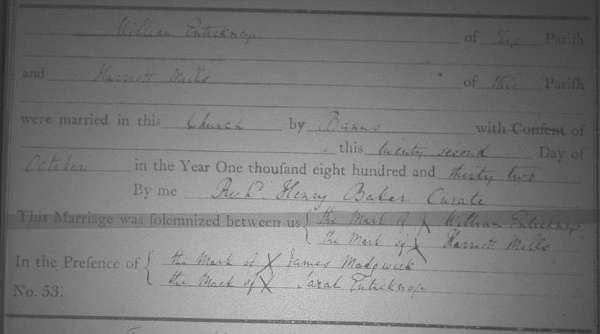 William Enticknap of this Parish
and Harriott Mills of this Parish
were married in this Church by Banns with Consent of
this twenty second Day of
October in the Year One thousand eight hundred and thirty two
By me Henry Baker Curate
This Marriage was solemnized between us { the Mark of X William Enticknap
the Mark of X Harriott Mills
In the Presence of { the Mark of X James Madgwick
the Mark of X Sarah Enticknap
No. 53.